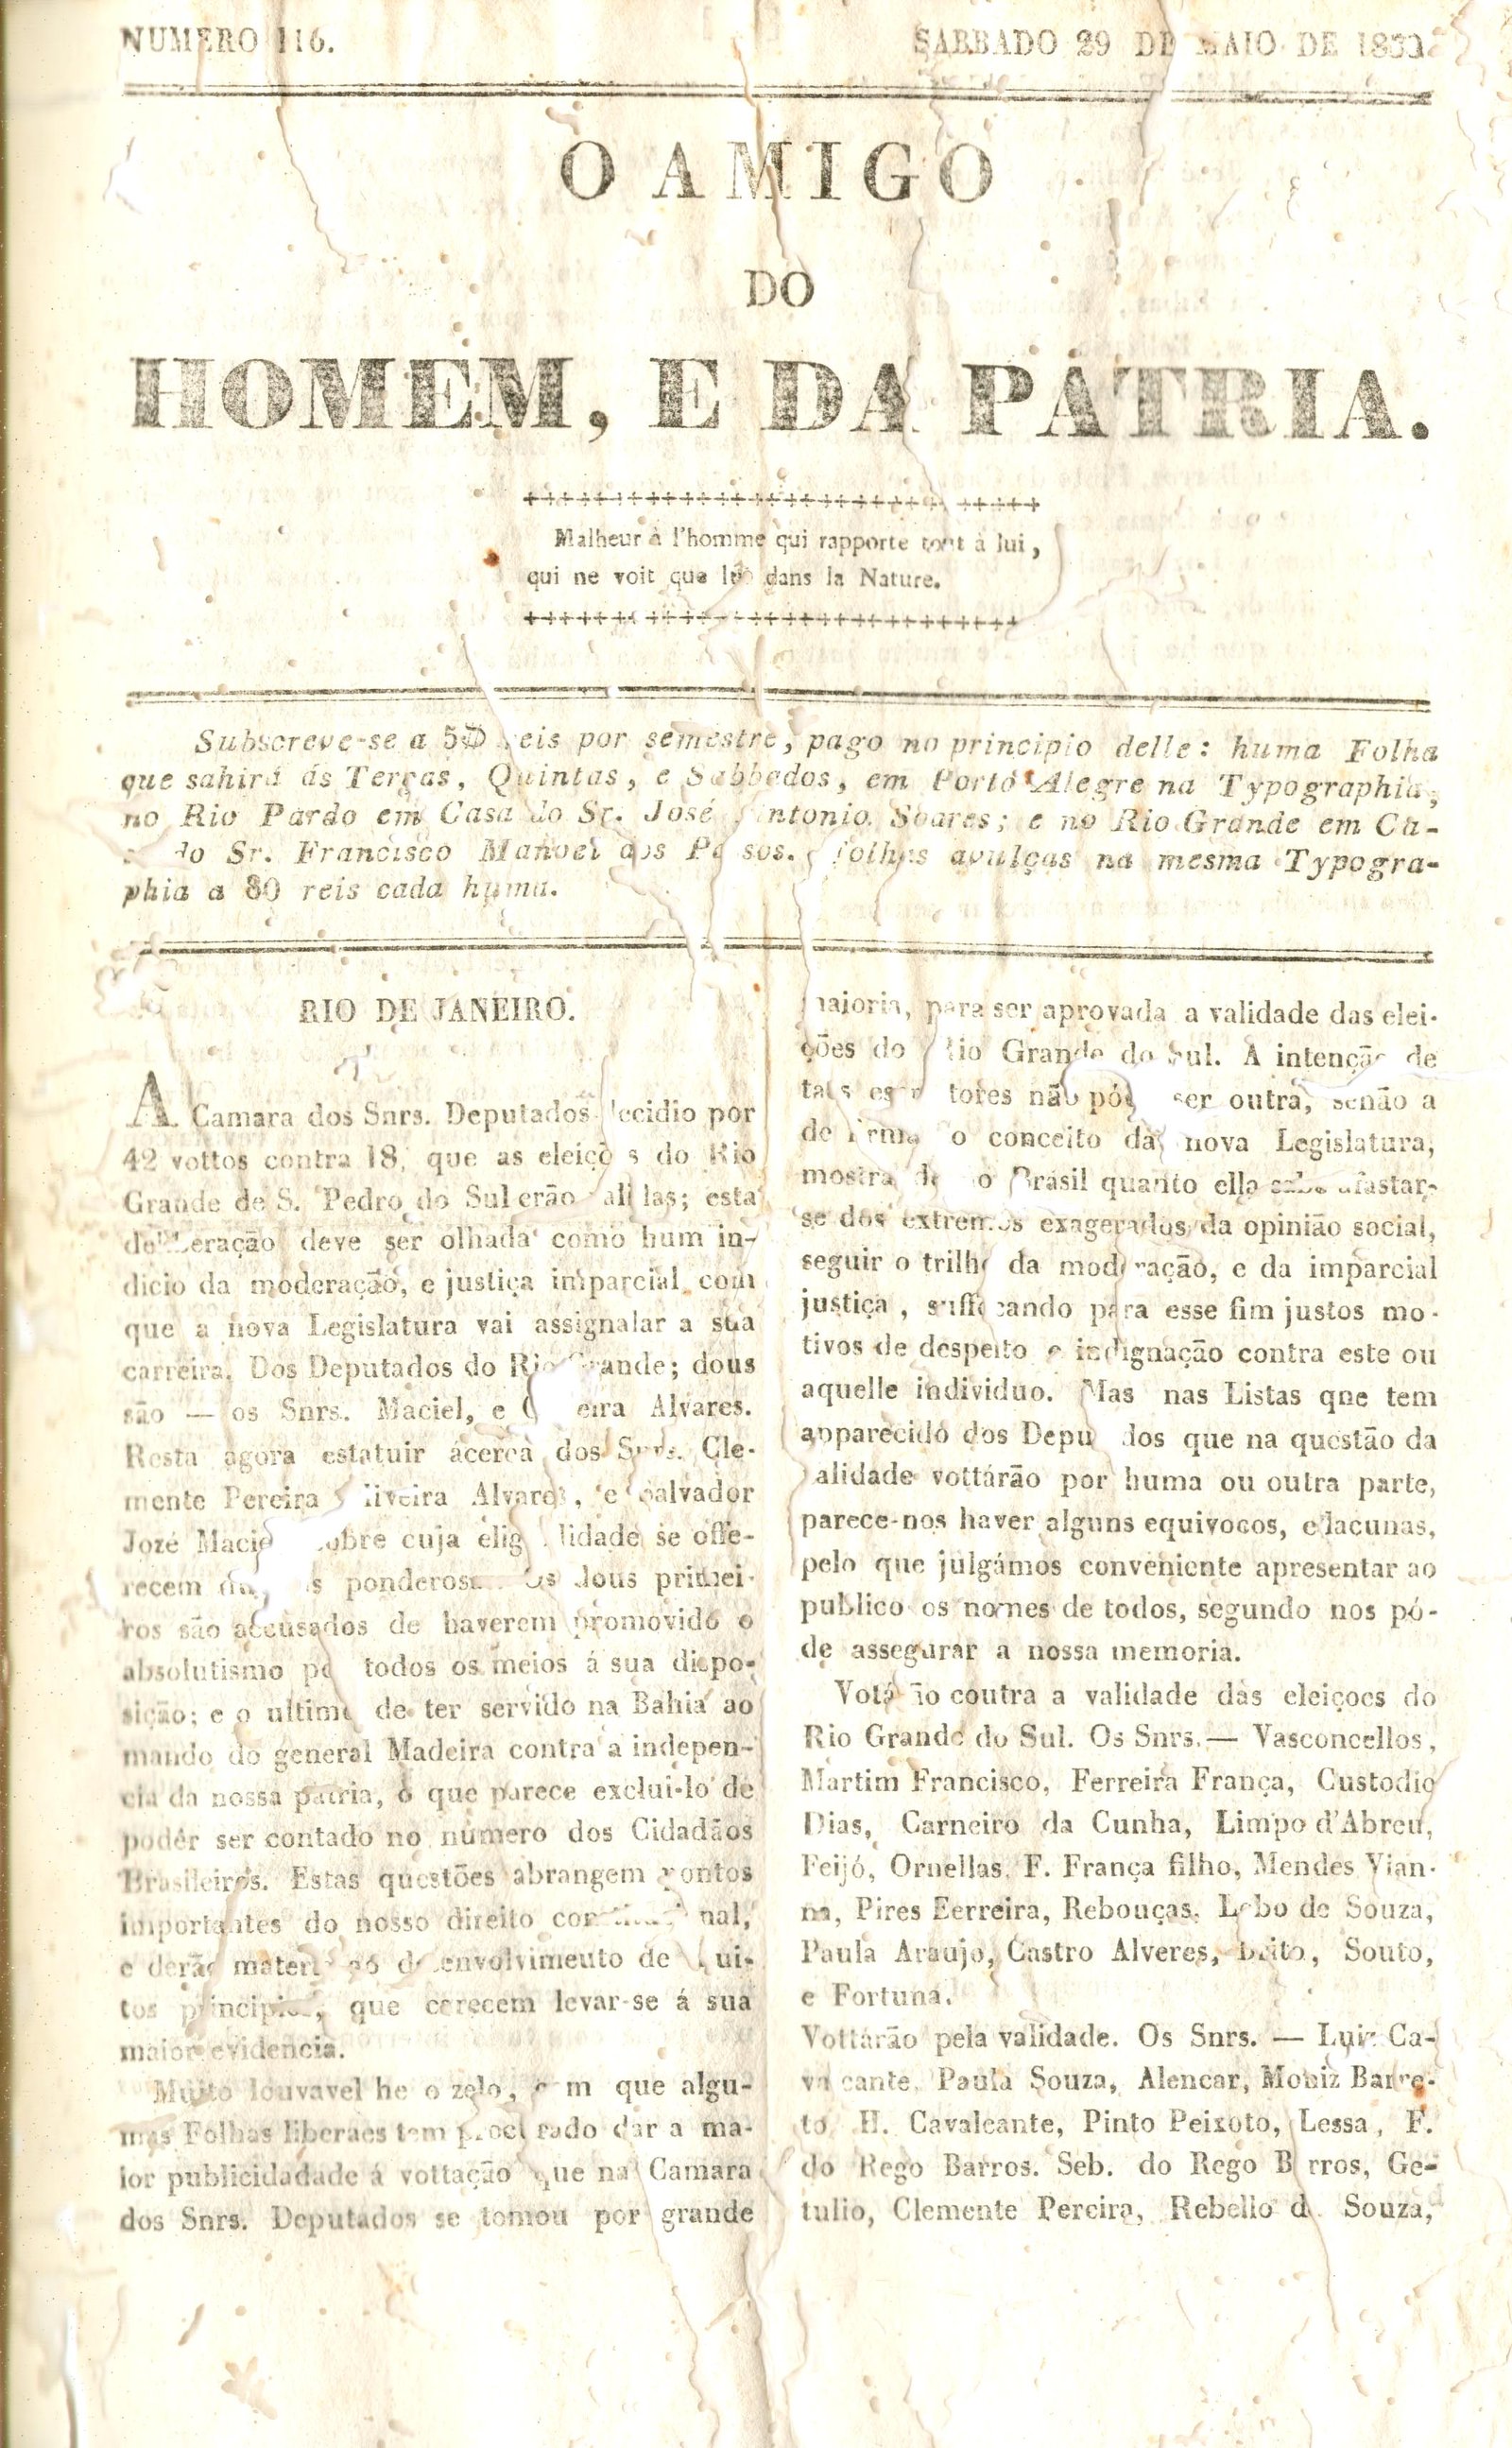 NUMERO 116.
SABBADO 29 DE MAIO DE
O AMIGO
DO
HOMEM, E DA PATRIA.
Malheur à l'homme qui rapporte tout à lui,
qui ne voit que lui dans la Nature.
Subscreve-se a reis por semestre, pago no principio delle: huma Folha
que sahirá ás Terças, Quintas, e Sabbados, em Porto Alegre na Typographia,
no Rio Pardo em Casa do Sr. José Antonio Soares; e no Rio Grande em Ca-
do Sr. Francisco Manoel dos folhas avulças na mesma Typogra-
phia a 80 reis cada huma.
RIO DE JANEIRO.
A Camara dos Snrs. Deputados decidio por
42 vottos contra 18, que as eleições do Rio
Grande de S. Pedro do Sul erão esta
deliberação deve ser olhada como hum in-
dicio da moderação, e justiça imparcial com
que a nova Legislatura vai assignalar a sua
carreira. Dos Deputados do Rio Grande; dous
são — os Snrs. Maciel, e Alvares.
Resta agora estatuir ácerca dos Snrs. Cle-
mente Pereira Oliveira Alvares, e Salvador
Jozé Maciel sobre cuja elig lidade se offe-
recem ponderosas Os dous primei-
ros são accusados de haverem promovido o
absolutismo por todos os meios á sua dispo-
sição; e o ultimo de ter servido na Bahia ao
mando do general Madeira contra a indepen-
cia da nossa patria, o que parece exclui-lo de
podêr ser contado no número dos Cidadãos
Brasileiros. Estas questões abrangem pontos
importantes do nosso direito constitucional,
e derão materia ao desenvolvimeuto de mui-
tos principios, que carecem levar-se á sua
maior evidencia.
Muito louvavel he o zelo, com que algu-
mas Folhas liberaes tem procurado dar a ma-
ior publicidadade á vottação que na Camara
dos Snrs. Deputados se tomou por grande
maioria, para ser aprovada a validade das elei-
ções do Rio Grande do Sul. A intenção de
taes escritores não póde ser outra, senão a
de firmar o conceito da nova Legislatura,
mostrando ao Brasil quanto ella sabe afastar-
se dos extremos exagerados da opinião social,
seguir o trilho da moderação, e da imparcial
justiça, suffocando para esse fim justos mo-
tivos de despeito e indignação contra este ou
aquelle individuo. Mas nas Listas qne tem
apparecido dos Deputados que na questão da
validade vottárão por huma ou outra parte,
parece-nos haver alguns equivocos, e lacunas,
pelo que julgámos conveniente apresentar ao
publico os nomes de todos, segundo nos pó-
de assegurar a nossa memoria.
Votárão coutra a validade das eleiçoes do
Rio Grande do Sul. Os Snrs.— Vasconcellos,
Martim Francisco, Ferreira França, Custodio
Dias, Carneiro da Cunha, Limpo d'Abreu,
Feijó, Ornellas, F. França filho, Mendes Vian-
na, Pires Eerreira, Rebouças, Lobo de Souza,
Paula Araujo, Castro Alveres, Brito, Souto,
e Fortuna.
Vottárão pela validade. Os Snrs. — Luiz Ca-
valcante, Paula Souza, Alencar, Moniz Barre-
to, H. Cavalcante, Pinto Peixoto, Lessa, F.
do Rego Barros. Seb. do Rego Barros, Ge-
tulio, Clemente Pereira, Rebello de Souza,